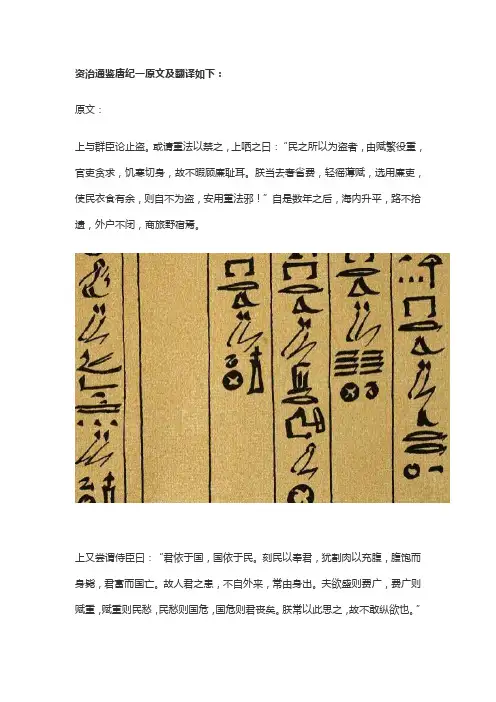 资治通鉴唐纪一原文及翻译如下：
原文：
上与群臣论止盗。或请重法以禁之，上哂之曰：“民之所以为盗者，由赋繁役重，
官吏贪求，饥寒切身，故不暇顾廉耻耳。朕当去奢省费，轻徭薄赋，选用廉吏，
使民衣食有余，则自不为盗，安用重法邪！”自是数年之后，海内升平，路不拾
遗，外户不闭，商旅野宿焉。
上又尝谓侍臣曰：“君依于国，国依于民。刻民以奉君，犹割肉以充腹，腹饱而
身毙，君富而国亡。故人君之患，不自外来，常由身出。夫欲盛则费广，费广则
赋重，赋重则民愁，民愁则国危，国危则君丧矣。朕常以此思之，故不敢纵欲也。”